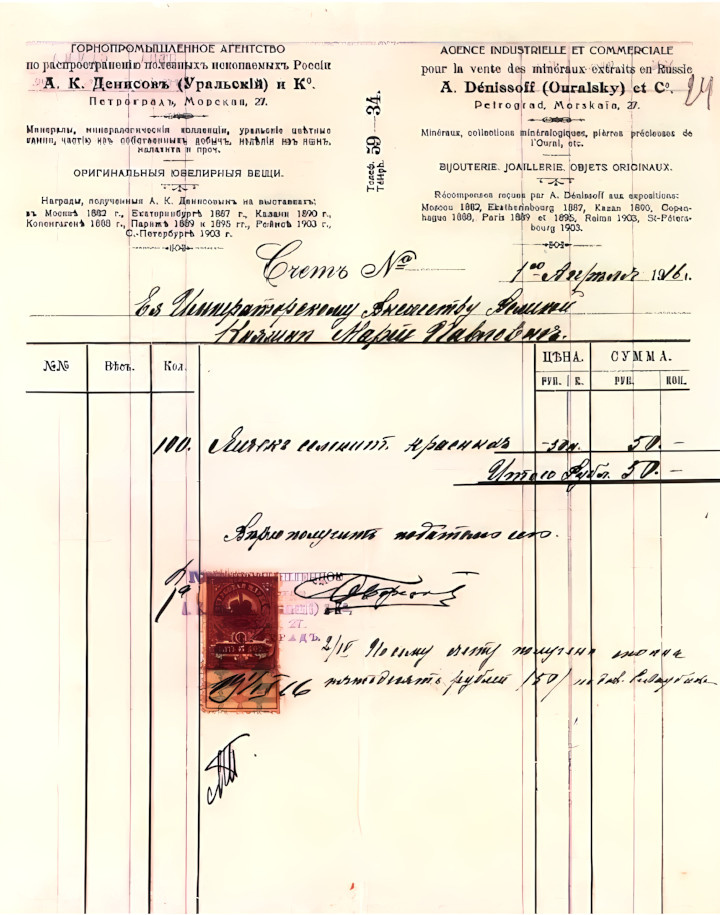 ГОРНОПРОМЫШЛЕННОЕ АГЕНТСТВО
по распространенію полезныхъ ископаемыхъ Россіи
А. К. Денисовъ (Уральскій) и К⁰.
Петроградъ, Морская, 27.
Минералы, минералогическія коллекціи, уральскіе цвѣтные
камни, частію изъ собственныхъ добычъ, издѣлія изъ яшмъ,
малахита и проч.
ОРИГИНАЛЬНЫЯ ЮВЕЛИРНЫЯ ВЕЩИ.
Награды, полученныя А. К. Денисовымъ на выставкахъ:
въ Москвѣ 1882 г., Екатеринбургѣ 1887 г., Казани 1890 г.,
Копенгагенѣ 1888 г., Парижѣ 1889 и 1895 гг., Реймсѣ 1903 г.,
С.-Петербургѣ 1903 г.
Телеф. 59—34.
Téléph.
AGENCE INDUSTRIELLE ET COMMERCIALE
pour la vente des minéraux extraits en Russie
A. Dénissoff (Ouralsky) et C⁰.
Petrograd, Morskaïa, 27.
Minéraux, collections minéralogiques, pierres précieuses de
l'Oural, etc.
BIJOUTERIE, JOAILLERIE, OBJETS ORIGINAUX.
Récompenses reçues par A. Dénissoff aux expositions:
Moscou 1882, Ekathérinbourg 1887, Kazan 1890, Copen-
hague 1888, Paris 1889 et 1895, Reims 1903, St-Péters-
bourg 1903.
24
Счетъ №
1го Апрѣля 1916 г.
Ея Императорскому Высочеству Великой
Княгинѣ Маріи Павловнѣ.
№№ Вѣсъ. Кол. ЦѢНА. СУММА.
РУБ. К. РУБ. КОП.
100. Яичекъ селенит. красныхъ -50к. 50.—
Итого Рубл. 50.—
Вѣрю получить подателю сего.
27.
2/IV По сему счету получены
пятьдесятъ рублей /50/
19 IV 16